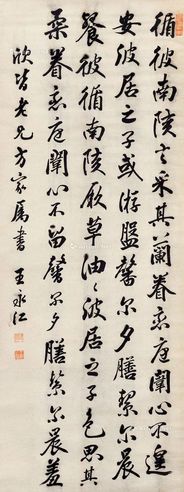 循彼南陔言采其蘭眷戀庭闈心不遑
安彼居之子或游盤馨爾夕膳絜爾晨
餐彼循南陔厥草油〻彼居之子色思其
柔眷戀庭闈心不留馨爾夕膳絜爾晨羞
欣皆老兄方家屬書 王永江